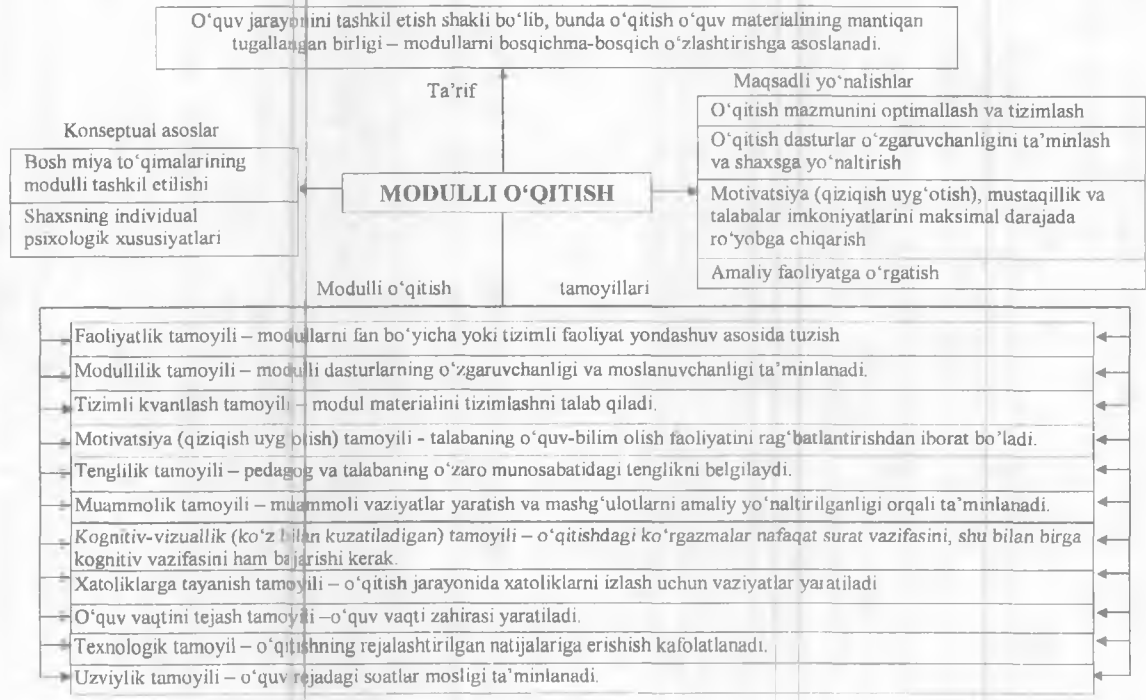 O‘quv jarayonini tashkil etish shakli bo‘lib, bunda o‘qitish o‘quv materialining mantiqan
tugallangan birligi – modullarni bosqichma-bosqich o‘zlashtirishga asoslanadi.
Ta’rif
Maqsadli yo‘nalishlar
O‘qitish mazmunini optimallash va tizimlash
O‘qitish dasturlar o‘zgaruvchanligini ta’minlash
va shaxsga yo‘naltirish
Motivatsiya (qiziqish uyg‘otish), mustaqillik va
talabalar imkoniyatlarini maksimal darajada
ro‘yobga chiqarish
Amaliy faoliyatga o‘rgatish
Konseptual asoslar
Bosh miya to‘qimalarining
modulli tashkil etilishi
Shaxsning individual
psixologik xususiyatlari
MODULLI O‘QITISH
Modulli o‘qitish tamoyillari
Faoliyatlik tamoyili – modullarni fan bo‘yicha yoki tizimli faoliyat yondashuv asosida tuzish
Modullilik tamoyili – modulli dasturlarning o‘zgaruvchanligi va moslanuvchanligi ta’minlanadi.
Tizimli kvantlash tamoyili – modul materialini tizimlashni talab qiladi.
Motivatsiya (qiziqish uyg‘otish) tamoyili - talabaning o‘quv-bilim olish faoliyatini rag‘batlantirishdan iborat bo‘ladi.
Tenglilik tamoyili – pedagog va talabaning o‘zaro munosabatidagi tenglikni belgilaydi.
Muammolik tamoyili – muammoli vaziyatlar yaratish va mashg‘ulotlarni amaliy yo‘naltirilganligi orqali ta’minlanadi.
Kognitiv-vizuallik (ko‘z bilan kuzatiladigan) tamoyili – o‘qitishdagi ko‘rgazmalar nafaqat surat vazifasini, shu bilan birga
kognitiv vazifasini ham bajarishi kerak.
Xatoliklarga tayanish tamoyili – o‘qitish jarayonida xatoliklarni izlash uchun vaziyatlar yaratiladi
O‘quv vaqtini tejash tamoyili –o‘quv vaqti zahirasi yaratiladi.
Texnologik tamoyil – o‘qitishning rejalashtirilgan natijalariga erishish kafolatlanadi.
Uzviylik tamoyili – o‘quv rejadagi soatlar mosligi ta’minlanadi.